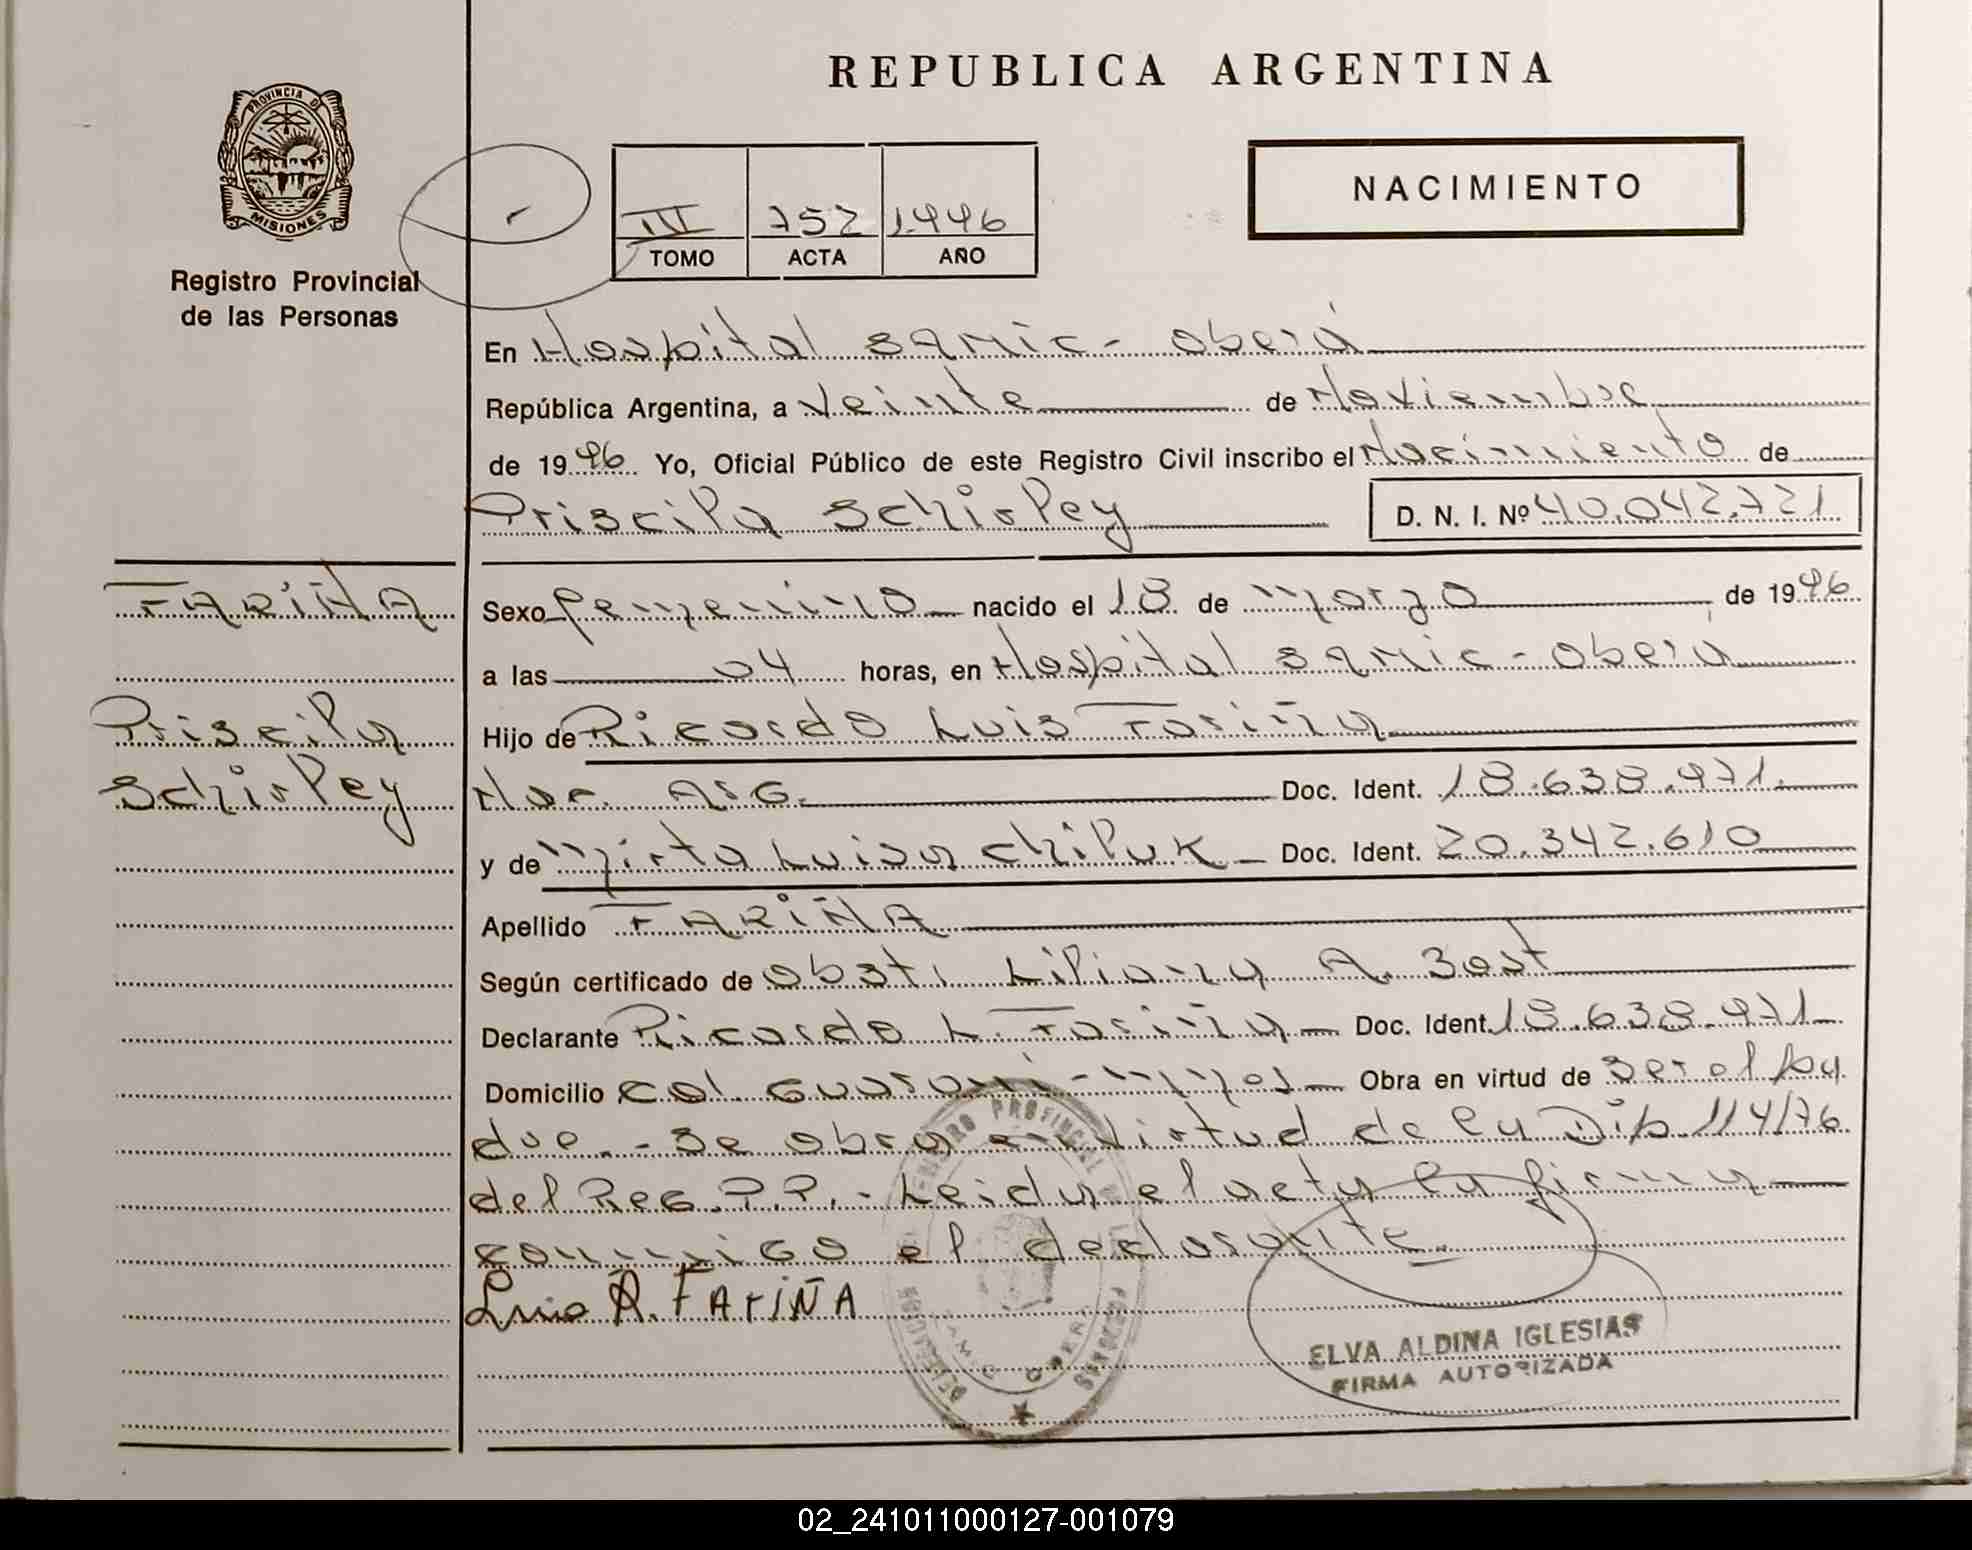 REPUBLICA ARGENTINA
PROVINCIA DE
MISIONES
Registro Provincial
de las Personas
III 752 1.996
TOMO ACTA AÑO
NACIMIENTO
En Hospital SAMIC - Oberá
República Argentina, a Veinte de Noviembre
de 1996 Yo, Oficial Público de este Registro Civil inscribo el Nacimiento de
Priscila Schirley D. N. I. Nº 40.042.721
FARIÑA
Priscila
Schirley
Sexo femenino nacido el 18 de marzo de 1996
a las 04 horas, en Hospital SAMIC - Oberá
Hijo de Ricardo Luis Fariña
Nac. Arg. Doc. Ident. 18.638.971.
y de Mirta Luisa Chiluk Doc. Ident. 20.342.610
Apellido FARIÑA
Según certificado de Obst. Liliana A.
Declarante Ricardo L. Fariña Doc. Ident. 18.638.971
Domicilio Col. Guaraní - Mnes Obra en virtud de ser el pa
dre. - Se obra en virtud de la Dip. 114/96
del Reg. P.P. - Leída el acta la firma
conmigo el declarante.
Luis R. FAriÑA
REGISTRO PROVINCIAL DE LAS PERSONAS
DELEGACION
SAMIC OBERA
ELVA ALDINA IGLESIAS
FIRMA AUTORIZADA
02_241011000127-001079